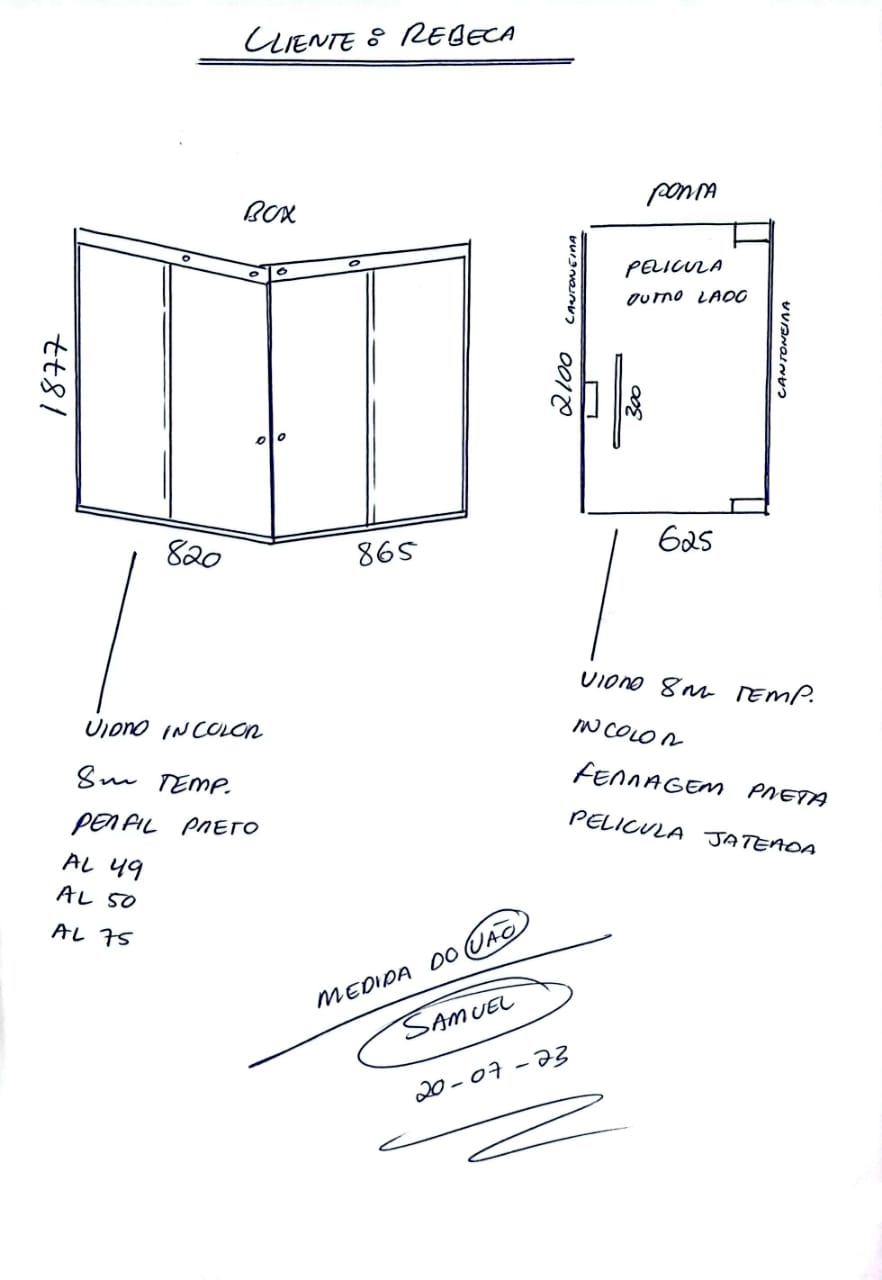 CLIENTE: REBECA
BOX
1877
820
865
VIDRO INCOLOR
8mm TEMP.
PERFIL PRETO
AL 49
AL 50
AL 75
PORTA
PELICULA
OUTRO LADO
CANTONEIRA
2100
300
CANTONEIRA
625
VIDRO 8mm TEMP.
INCOLOR
FERRAGEM PRETA
PELICULA JATEADA
MEDIDA DO VÃO
SAMUEL
20-07-23